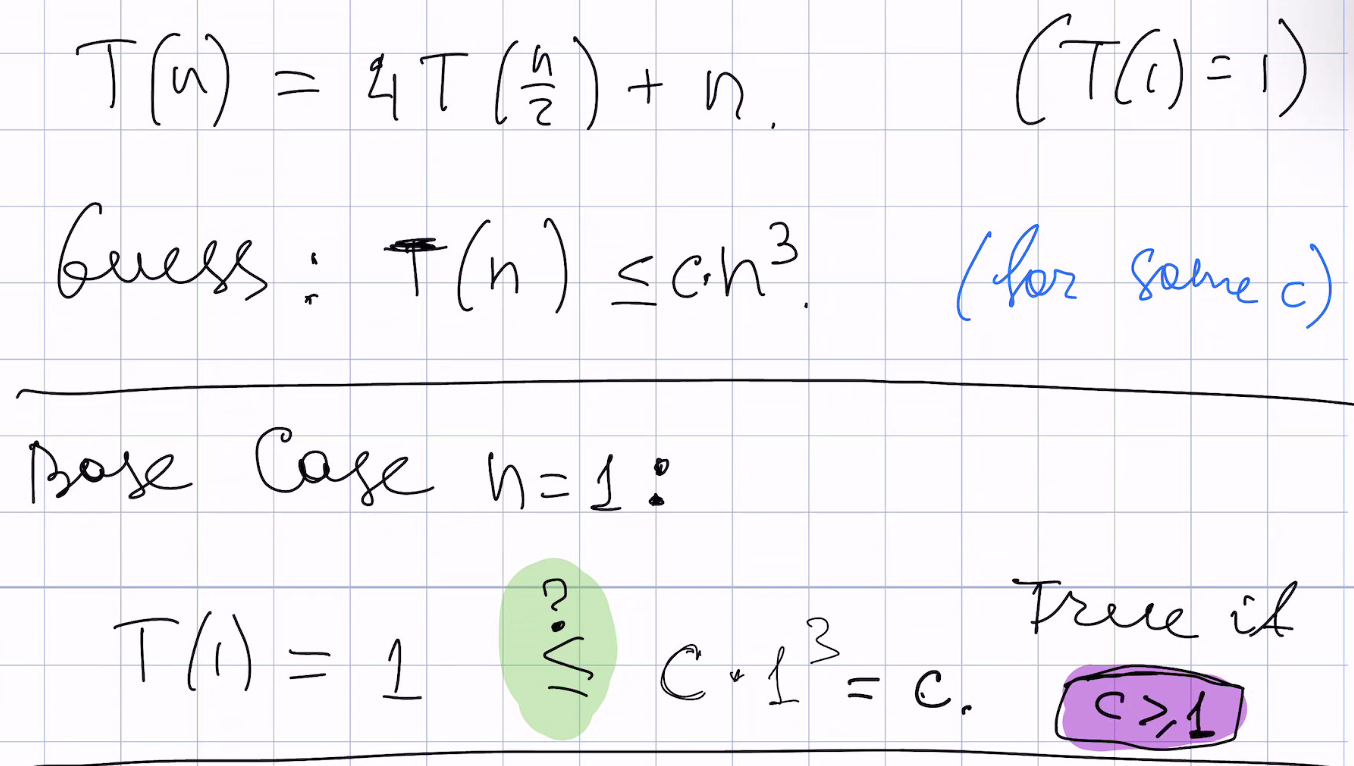 T(n) = 4T(n/2) + n. (T(1) = 1)
Guess: T(n) ≤ c·n³. (for some c)
Base Case n=1:
T(1) = 1 ≤? c·1³ = c. True if
c ≥ 1